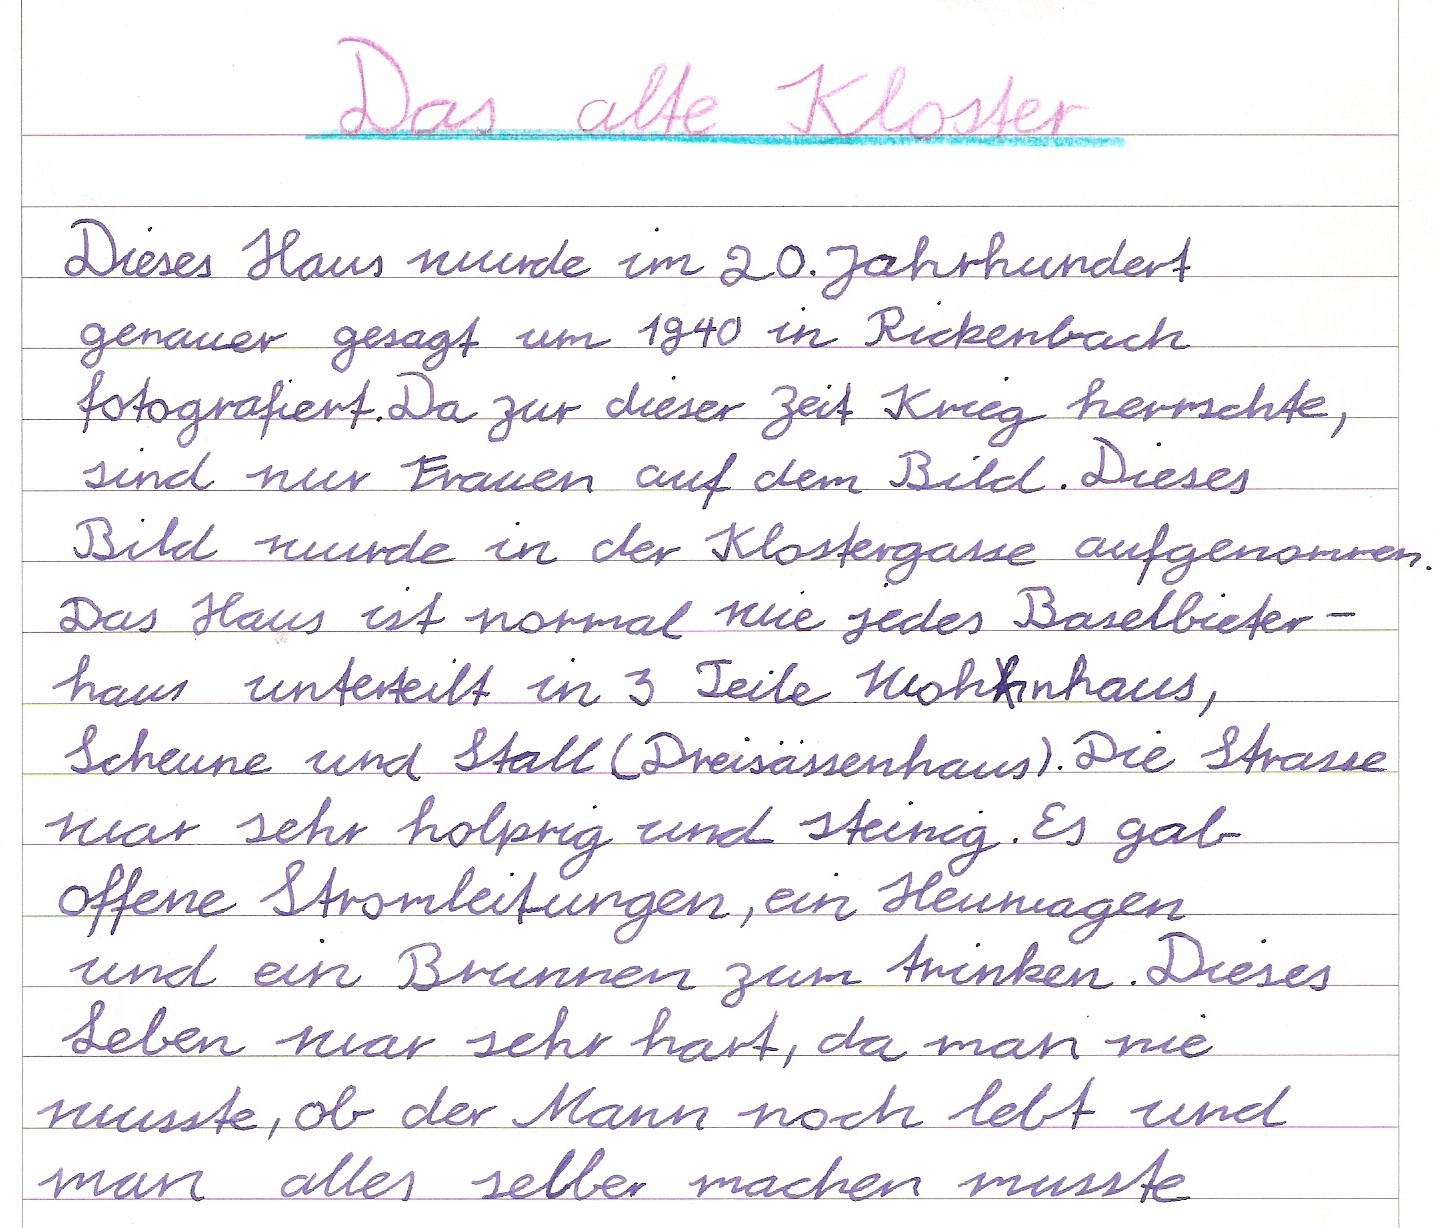 Das alte Kloster
Dieses Haus wurde im 20. Jahrhundert
genauer gesagt um 1940 in Rickenbach
fotografiert. Da zur dieser Zeit Krieg herrschte,
sind nur Frauen auf dem Bild. Dieses
Bild wurde in der Klostergasse aufgenommen.
Das Haus ist normal wie jedes Baselbieter-
haus unterteilt in 3 Teile Wohnhaus,
Scheune und Stall (Dreisässenhaus). Die Strasse
war sehr holprig und steinig. Es gab
offene Stromleitungen, ein Heuwagen
und ein Brunnen zum trinken. Dieses
Leben war sehr hart, da man nie
wusste, ob der Mann noch lebt und
man alles selber machen musste